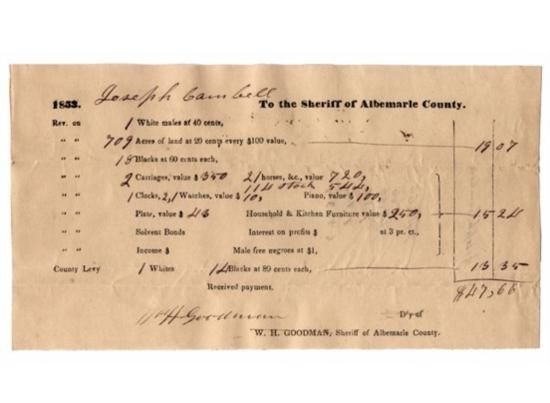 1853. Joseph Cambell To the Sheriff of Albemarle County.
Rev. on 1 White males at 40 cents,
" " 709 Acres of land at 20 cents every $100 value, 19 07
" " 18 Blacks at 60 cents each,
" " 2 Carriages, value $350 21 horses, &c., value 720,
114 stock 544,
" " 1 Clocks, 2,1 Watches, value $10, Piano, value $100,
" " Plate, value $43 Household & Kitchen Furniture value $250, 15 24
" " Solvent Bonds Interest on profits $ at 3 pr. ct.,
" " Income $ Male free negroes at $1,
County Levy 1 Whites 14 Blacks at 89 cents each, 13 35
Received payment. $47,66
WH Goodman D'y of
W. H. GOODMAN, Sheriff of Albemarle County.